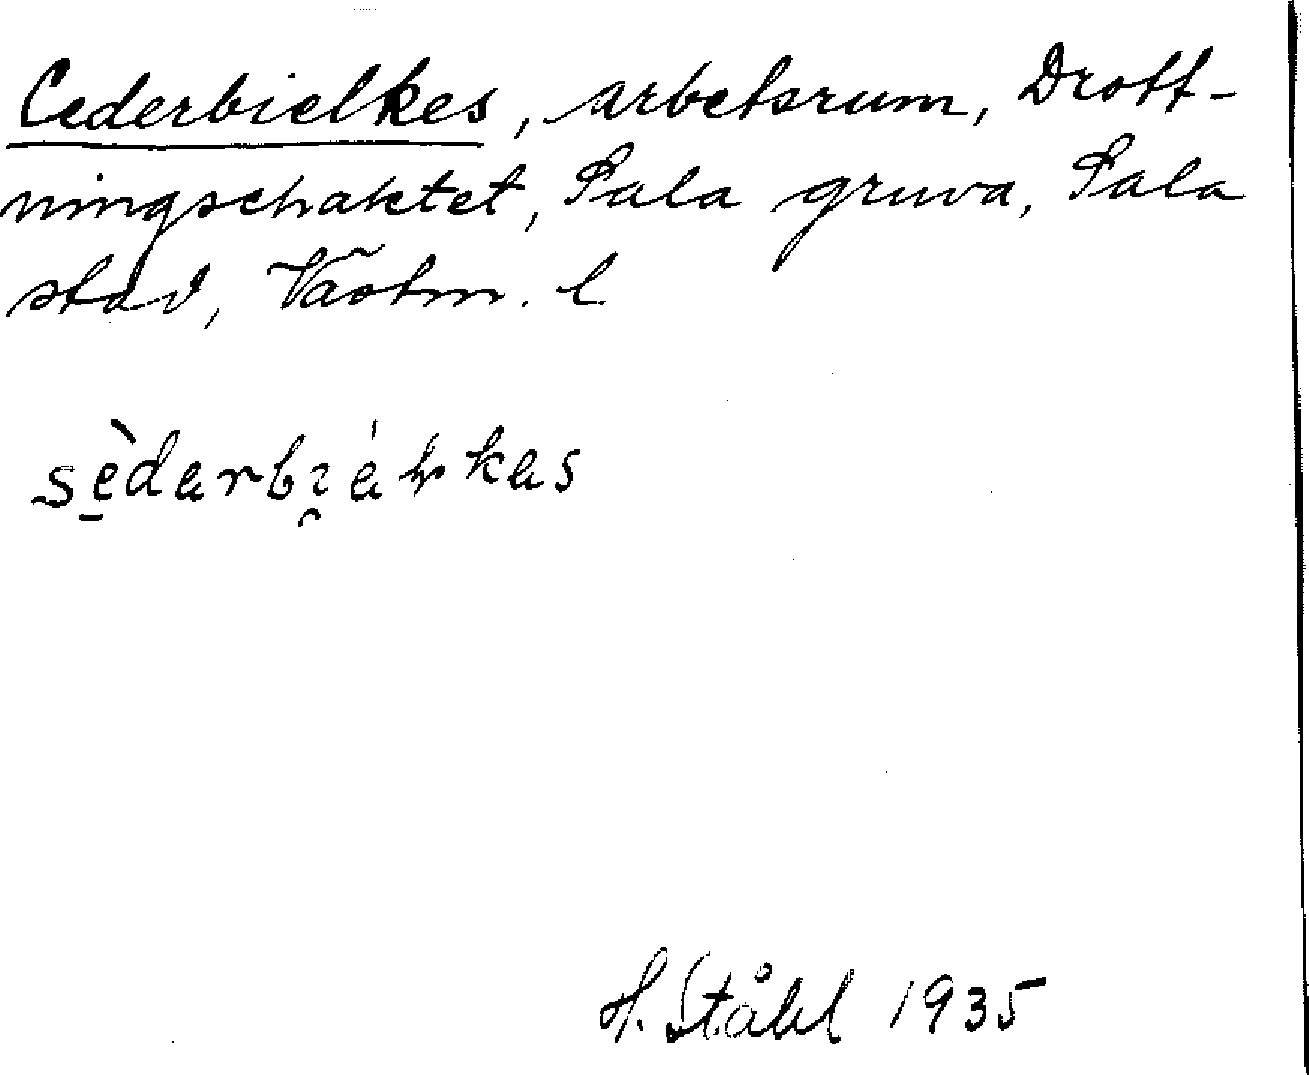 Cederbielkes, arbetsrum, Drott-
ningschaktet, Sala gruva, Sala
stad, Västm. l
H. Ståhl 1935